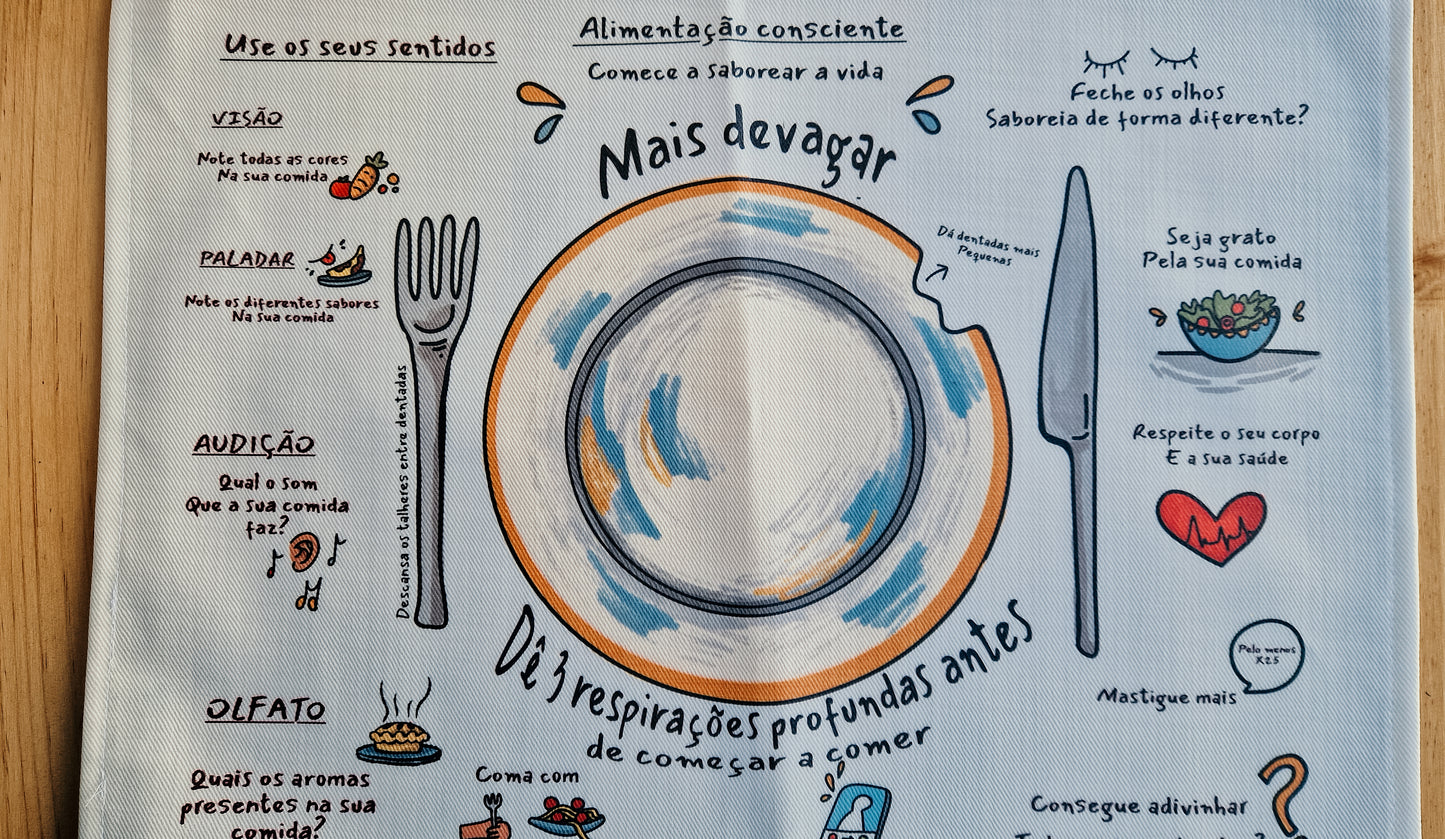 Alimentação consciente
Comece a saborear a vida
Mais devagar
Use os seus sentidos
VISÃO
Note todas as cores
Na sua comida
PALADAR
Note os diferentes sabores
Na sua comida
AUDIÇÃO
Qual o som
Que a sua comida
faz?
OLFATO
Quais os aromas
presentes na sua
comida?
Descansa os talheres entre dentadas
Dá dentadas mais
Pequenas
Dê 3 respirações profundas antes
de começar a comer
Coma com
Feche os olhos
Saboreia de forma diferente?
Seja grato
Pela sua comida
Respeite o seu corpo
E a sua saúde
Pelo menos
X25
Mastigue mais
Consegue adivinhar